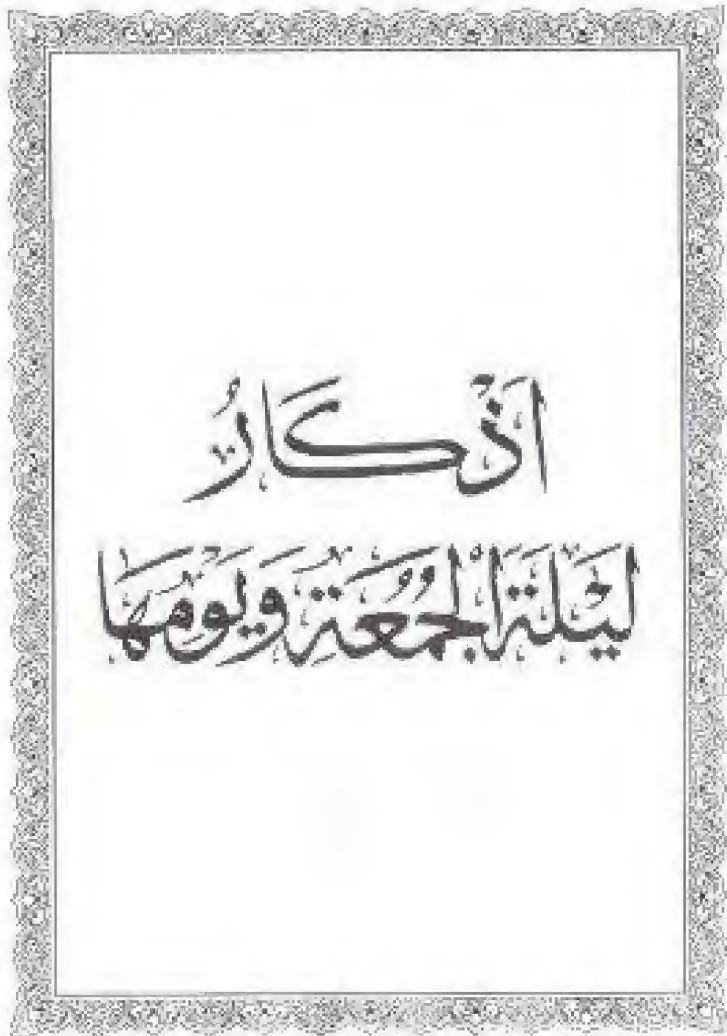 اَذْكَارُ
لَيْلَةَ الْجُمُعَةِ وَيَوْمَهَا